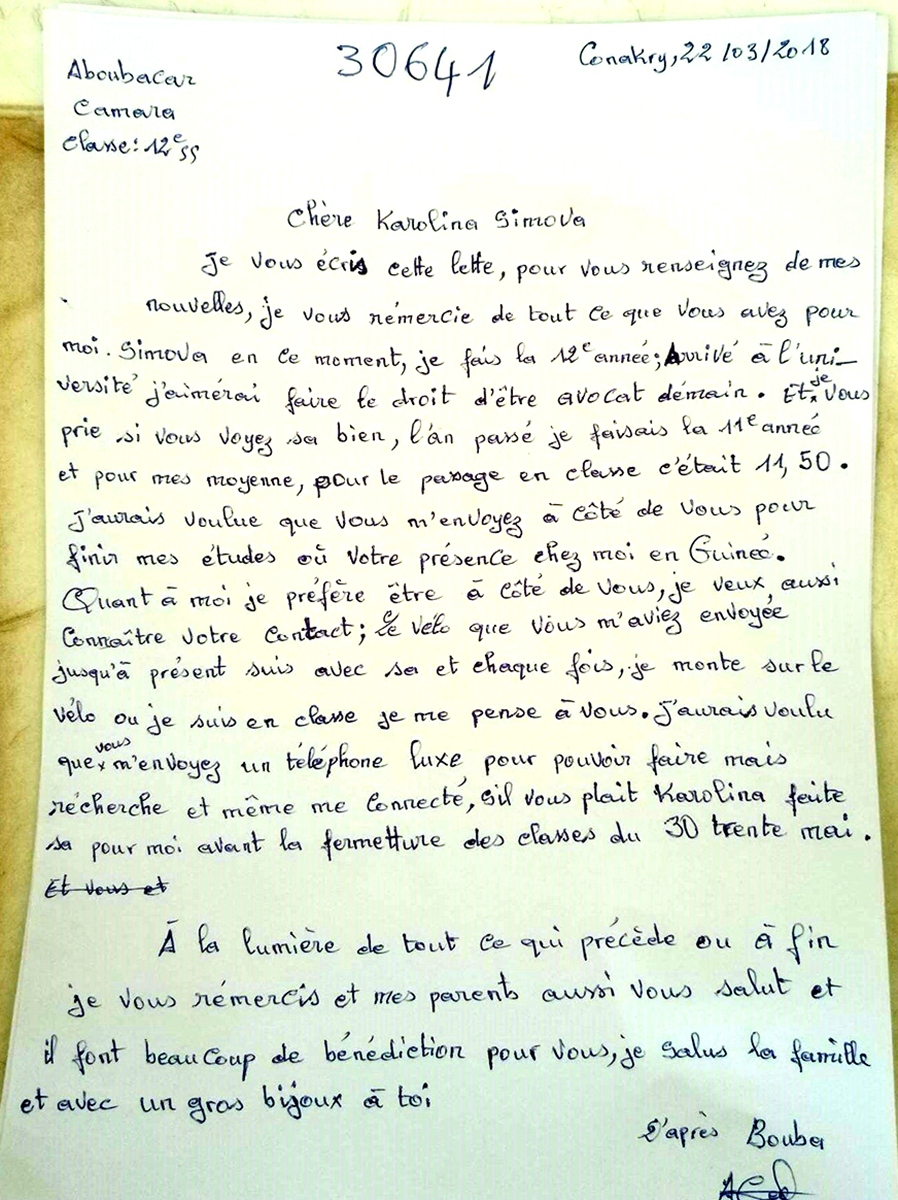 Aboubacar
Camara
Classe: 12e SS
30641
Conakry, 22/03/2018
Chère Karolina Simova
Je vous écris cette lette, pour vous renseignez de mes
nouvelles, je vous rémercie de tout ce que vous avez pour
moi. Simova en ce moment, je fais la 12e année; Arrivé à l'uni-
versité j'aimérai faire le droit d'être avocat démain. Et je vous
prie si vous voyez sa bien, l'an passé je faisais la 11e année
et pour mes moyenne, pour le passage en classe c'était 11,50.
J'aurais voulue que vous m'envoyez à côté de vous pour
finir mes études où votre présence chez moi en Guinée.
Quant à moi je préfère être à côté de vous, je veux aussi
connaître votre contact; le vélo que vous m'aviez envoyée
jusqu'à présent suis avec sa et chaque fois, je monte sur le
vélo ou je suis en classe je me pense à vous. J'aurais voulu
que vous m'envoyez un téléphone luxe pour pouvoir faire mais
récherche et même me connecté, s'il vous plait Karolina faite
sa pour moi avant la fermetture des classes du 30 trente mai.
Et vous et
À la lumière de tout ce qui précède ou à fin
je vous rémercis et mes parents aussi vous salut et
il font beaucoup de bénédiction pour vous, je salus la famille
et avec un gras bijoux à toi
D'après Bouba